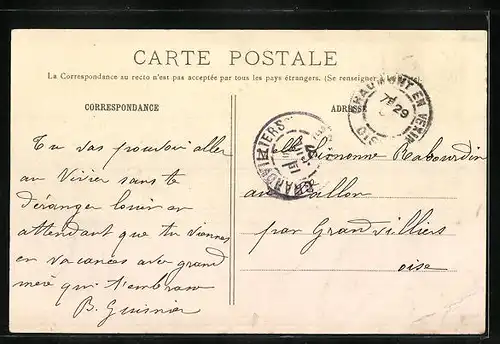 CARTE POSTALE
La Correspondance au recto n'est pas acceptée par tous les pays étrangers. (Se renseigner à la Poste)
CORRESPONDANCE
ADRESSE
Tu vas pouvoir aller
au Vivier sans te
déranger louer en
attendant que tu viennes
en vacances avec grand
mère qui t'embrasse
B. Guisnier
elle Simonne Rabourdin
au Hallon
par Grandvilliers
oise
CHAUMONT EN VEXIN
7E 29
GRANDVILLIERS